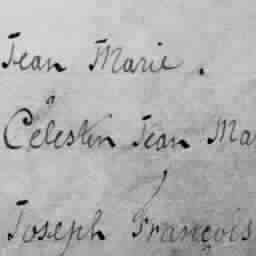 Jean Marie.
Célestin Jean Ma
Joseph François